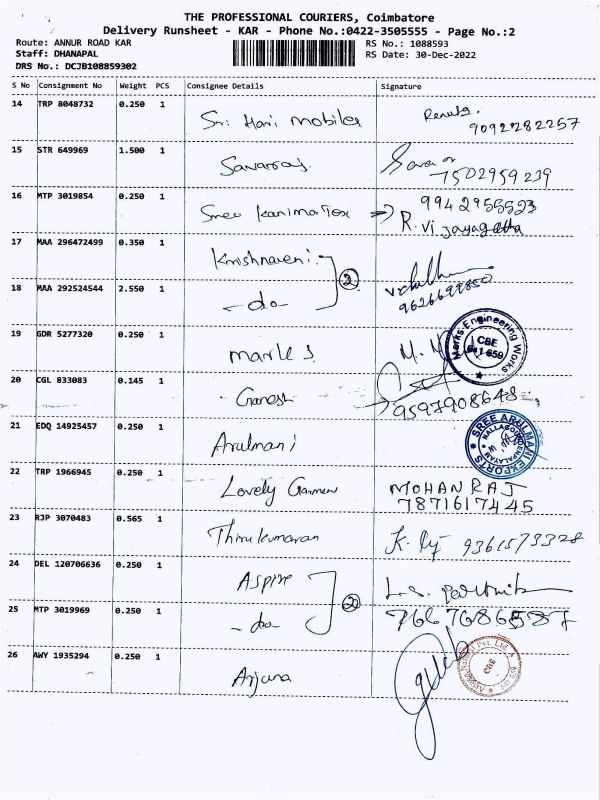 THE PROFESSIONAL COURIERS, Coimbatore
Delivery Runsheet - KAR - Phone No.:0422-3505555 - Page No.:2
Route: ANNUR ROAD KAR RS No.: 1088593
Staff: DHANAPAL RS Date: 30-Dec-2022
DRS No.: DCJB108859302
S No Consignment No Weight PCS Consignee Details Signature
14 TRP 8048732 0.250 1 Sri Hari mobiles
9092282257
15 STR 649969 1.500 1 Savaraj
7502959239
16 MTP 3019854 0.250 1 Sree Kanimatex 9942955523
R. Vijaya
17 MAA 296472499 0.350 1 Krishnaveni
2
18 MAA 292524544 2.550 1 -do-
19 GDR 5277320 0.250 1 marks M. M
Marks Engineering Works
CBE
20 CGL 833083 0.145 1 Ganesh
9597908648
21 EDQ 14925457 0.250 1 Arulmani
SREE ARULMANI EXPORTS
22 TRP 1966945 0.250 1 Lovely Garmen MOHANRAJ
7871617445
23 RJP 3070483 0.565 1 Thirukumaran 9361573328
24 DEL 120706636 0.250 1 Aspire
2
25 MTP 3019969 0.250 1 -do-
26 AWY 1935294 0.250 1 Arjuna
Pvt. Ltd.
CBE